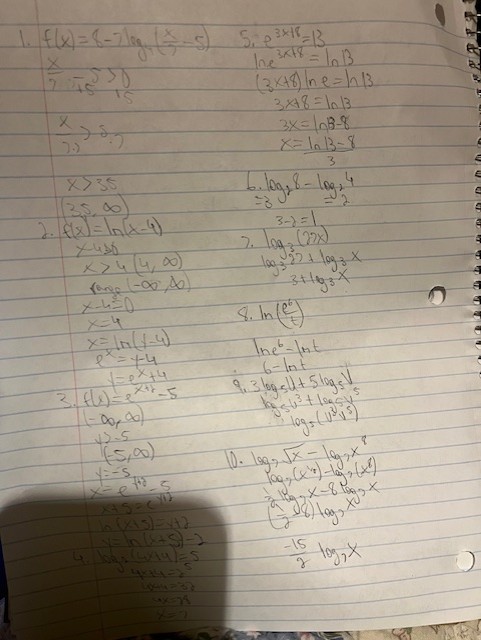 1. f(x) = 8-7log₇(x/7 -5)
x/7 -5 > 0
+5 +5
x/7 > 5
x > 35
(35, ∞)
2. f(x) = ln(x-4)
x-4>0
x > 4 (4, ∞)
range (-∞, ∞)
x-4=0
x=4
x = ln(y-4)
eˣ = y-4
y = eˣ+4
3. f(x) = eˣ⁺²-5
(-∞, ∞)
y>-5
(-5, ∞)
y=-5
x = eʸ⁺²-5
x+5 = eʸ⁺²
ln(x+5) = y+2
y = ln(x+5)-2
4. (4x+4)=5
x=7
5. e³ˣ⁺⁸=13
ln e³ˣ⁺⁸ = ln13
(3x+8) ln e = ln13
3x+8 = ln13
3x = ln13-8
x = ln13-8
3
6. log₂8 - log₂4
=3 =2
3-2=1
7. log₃(27x)
log₃27 + log₃x
3+log₃x
8. ln(e⁶/t)
ln e⁶ - ln t
6 - ln t
9. 3log₅u + 5log₅v
log₅u³ + log₅v⁵
log₅(u³v⁵)
10. log₇√x - log₇x⁸
log₇(x^1/2) - log₇(x⁸)
1/2 log₇x - 8log₇x
(1/2 - 8) log₇x
-15/2 log₇x